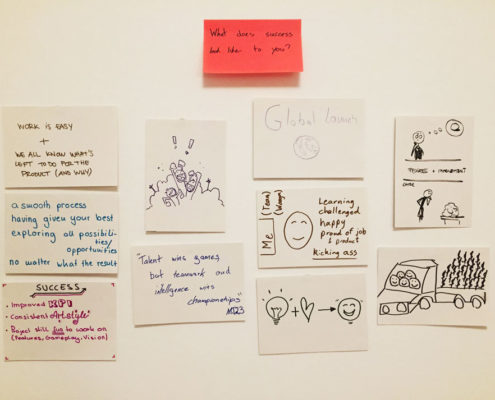 What does success
look like to you?
WORK IS EASY
+
WE ALL KNOW WHAT'S
LEFT TO DO FOR THE
PRODUCT (AND WHY)
a smooth process
having given your best
exploring all possibili-
ties/
opportunities
no matter what the result
SUCCESS
• Improved KPI
• Consistent Artstyle
• Project still fun to work on
(Features, Gameplay, Vision)
! !
"Talent wins games,
but teamwork and
intelligence wins
championships"
Global Launch
Me (Team)
Learning
challenged
happy
proud of job
& product
Kicking ass
+